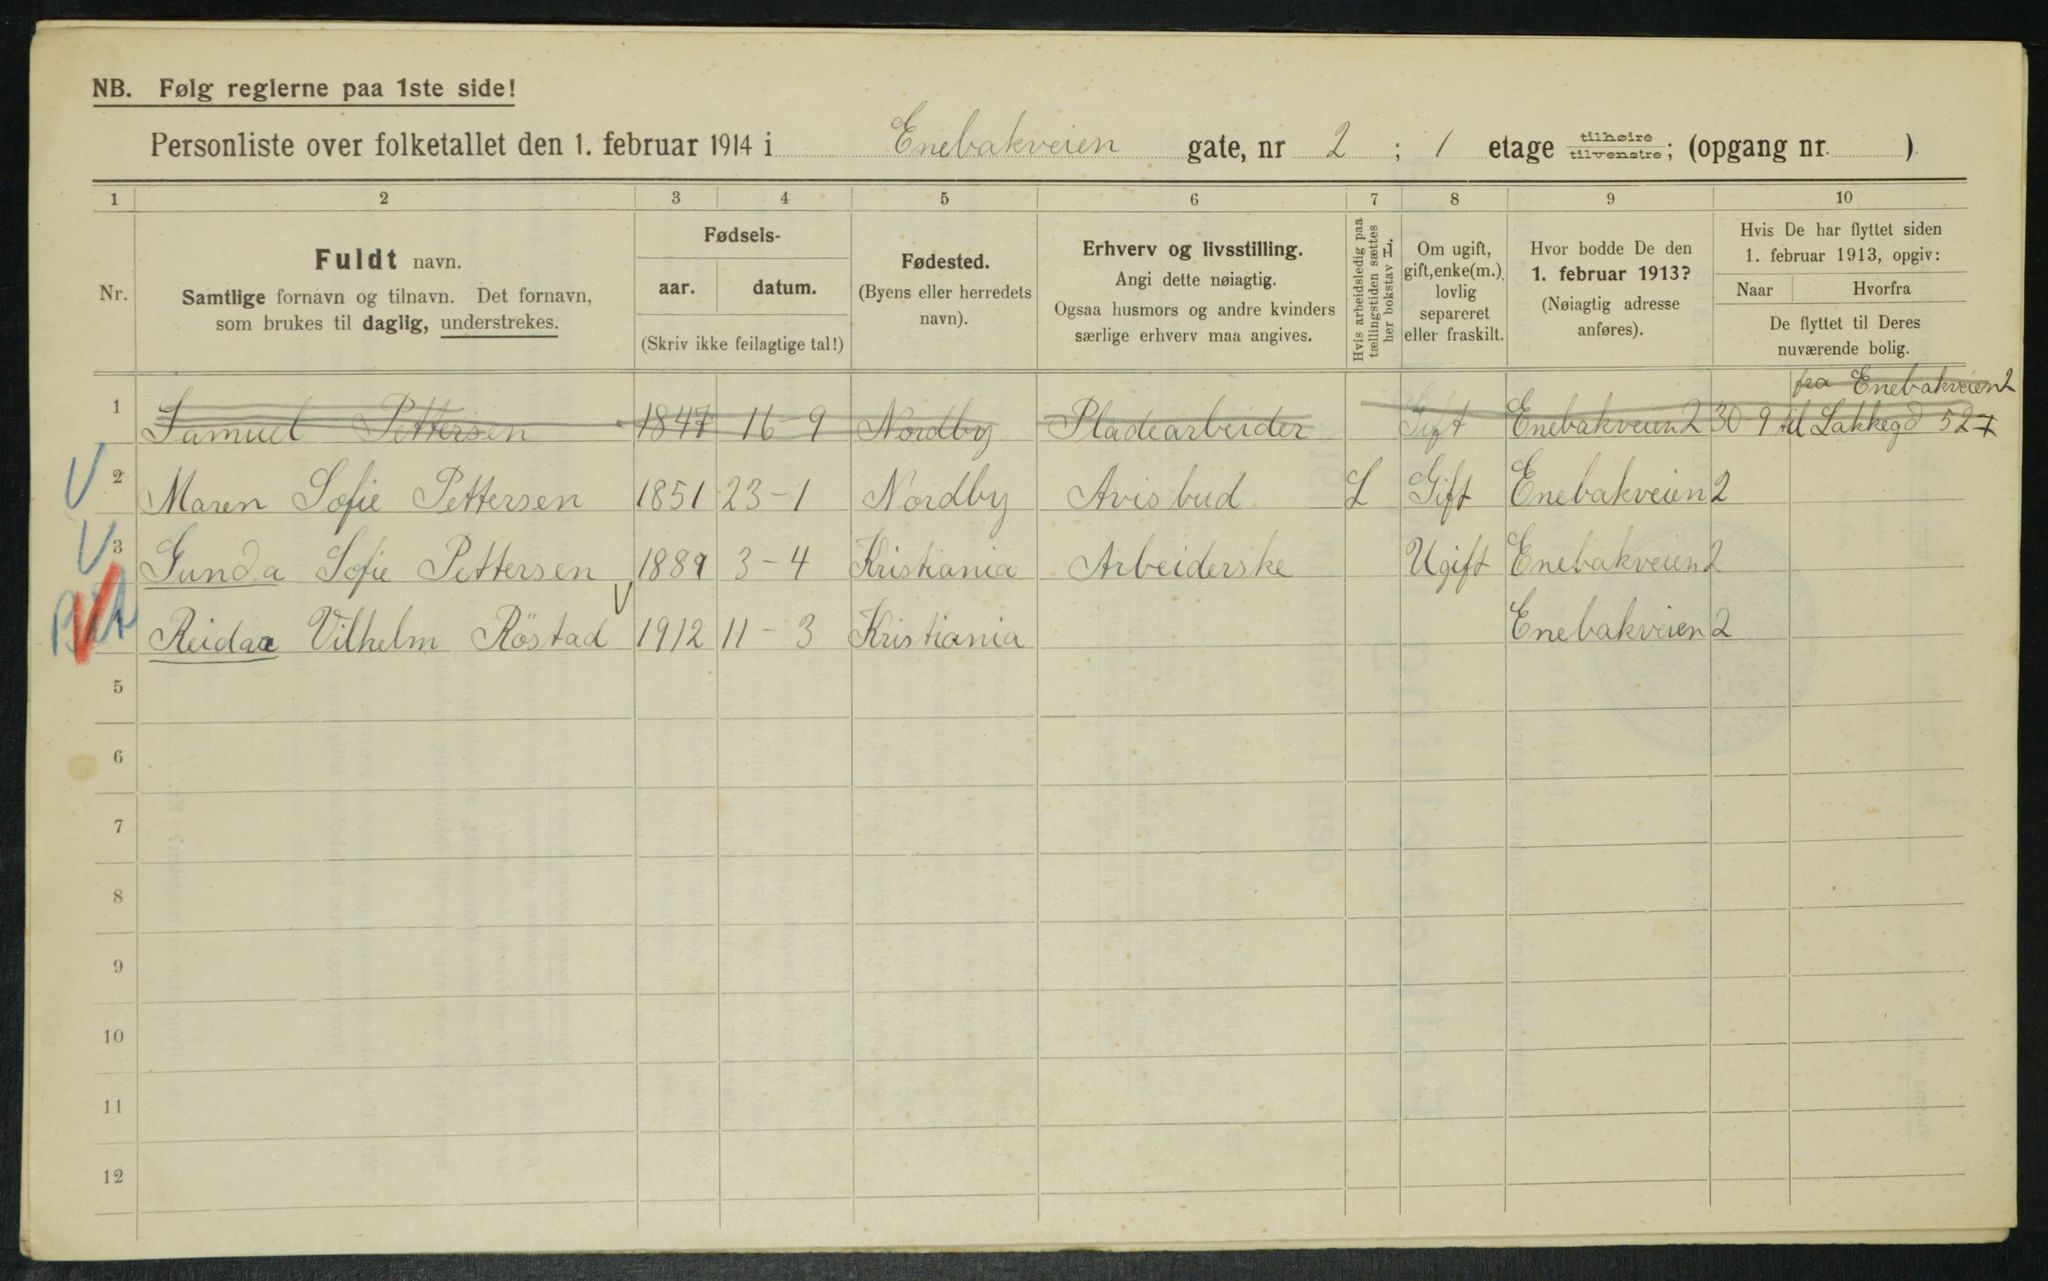 NB. Følg reglerne paa 1ste side!
Personliste over folketallet den 1. februar 1914 i Enebakveien gate, nr 2 ; 1 etage tilhøire tilvenstre; (opgang nr. )
1 2 3 4 5 6 7 8 9 10
Nr.
Fuldt navn.
Samtlige fornavn og tilnavn. Det fornavn,
som brukes til daglig, understrekes.
Fødsels-
aar. datum.
(Skriv ikke feilagtige tal!)
Fødested.
(Byens eller herredets
navn).
Erhverv og livsstilling.
Angi dette nøiagtig.
Ogsaa husmors og andre kvinders
særlige erhverv maa angives.
Hvis arbeidsledig paa
tællingstiden sættes
her bokstav L.
Om ugift,
gift, enke(m.),
lovlig
separeret
eller fraskilt.
Hvor bodde De den
1. februar 1913?
(Nøiagtig adresse
anføres).
Hvis De har flyttet siden
1. februar 1913, opgiv:
Naar Hvorfra
De flyttet til Deres
nuværende bolig.
fra Enebakveien 2
1 Samuel Pettersen 1847 16-9 Nordby Pladearbeider Gift Enebakveien 2 30-9 til Lakkegd 52
2 Maren Sofie Pettersen 1851 23-1 Nordby Avisbud L Gift Enebakveien 2
3 Gunda Sofie Pettersen 1889 3-4 Kristiania Arbeiderske Ugift Enebakveien 2
Reidar Vilhelm Röstad 1912 11-3 Kristiania Enebakveien 2
5
6
7
8
9
10
11
12